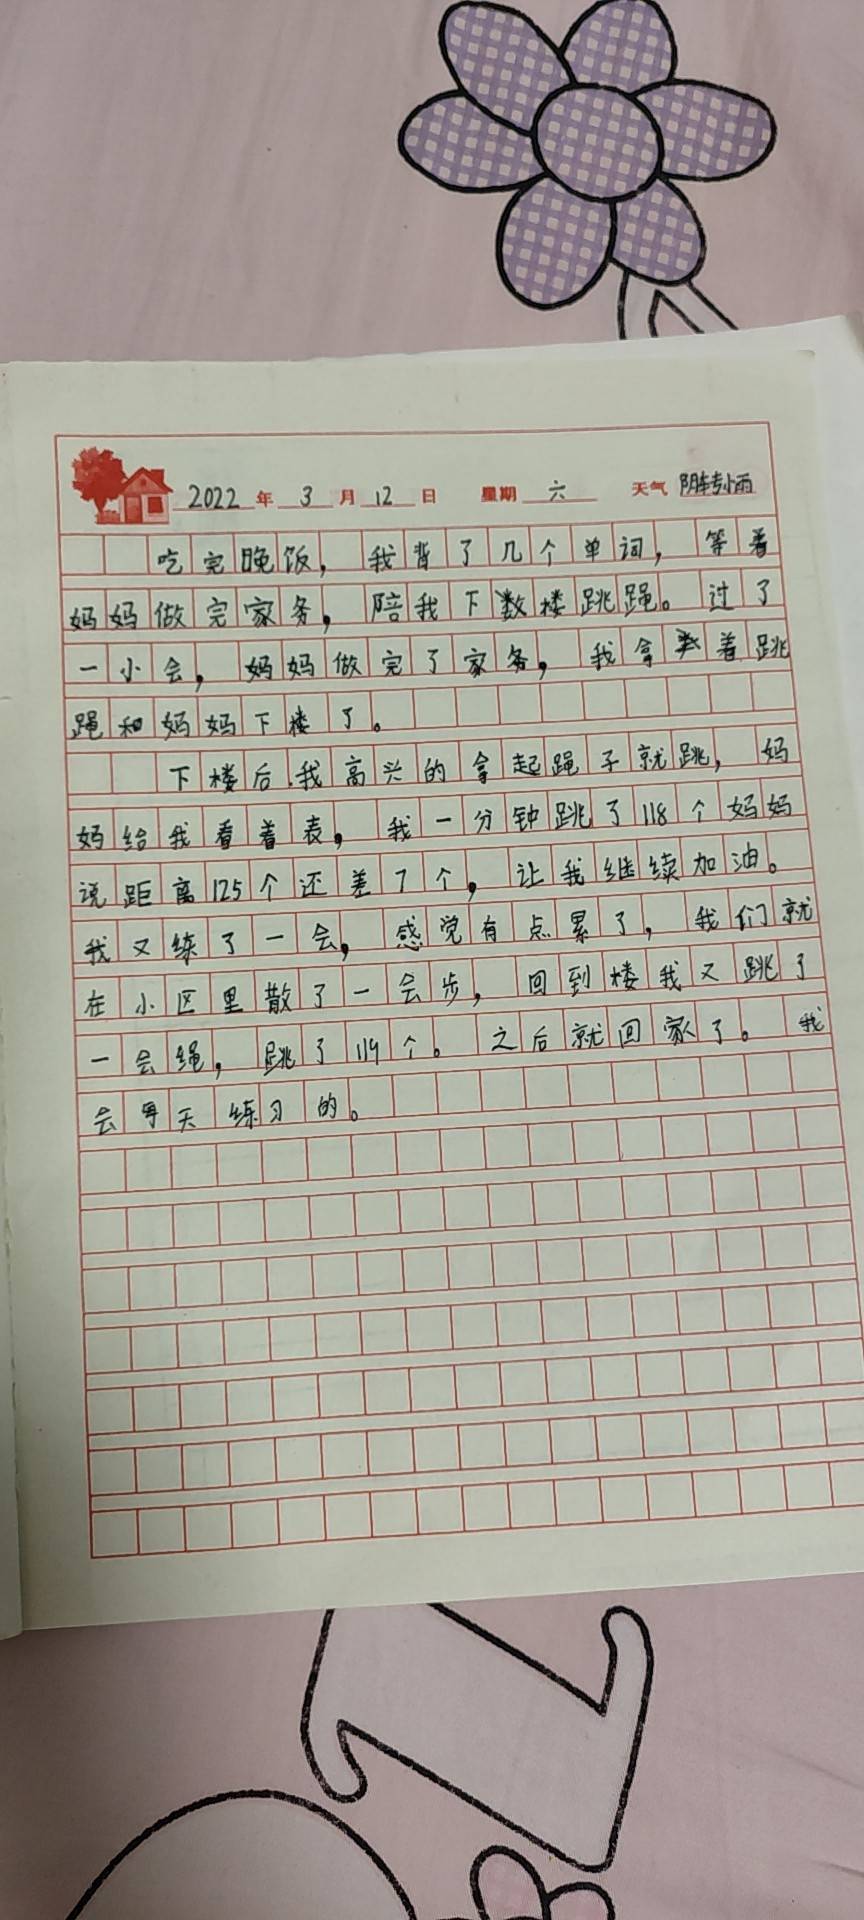 2022年3月12日 星期六 天气 阴转小雨
吃完晚饭，我背了几个单词，等着
妈妈做完家务，陪我下楼跳绳。过了
一小会，妈妈做完了家务，我拿着跳
绳和妈妈下楼了。
下楼后，我高兴的拿起绳子就跳，妈
妈给我看着表，我一分钟跳了118个妈妈
说距离125个还差7个，让我继续加油。
我又练了一会，感觉有点累了，我们就
在小区里散了一会步，回到楼我又跳了
一会绳，跳了119个。之后就回家了。我
会每天练习的。